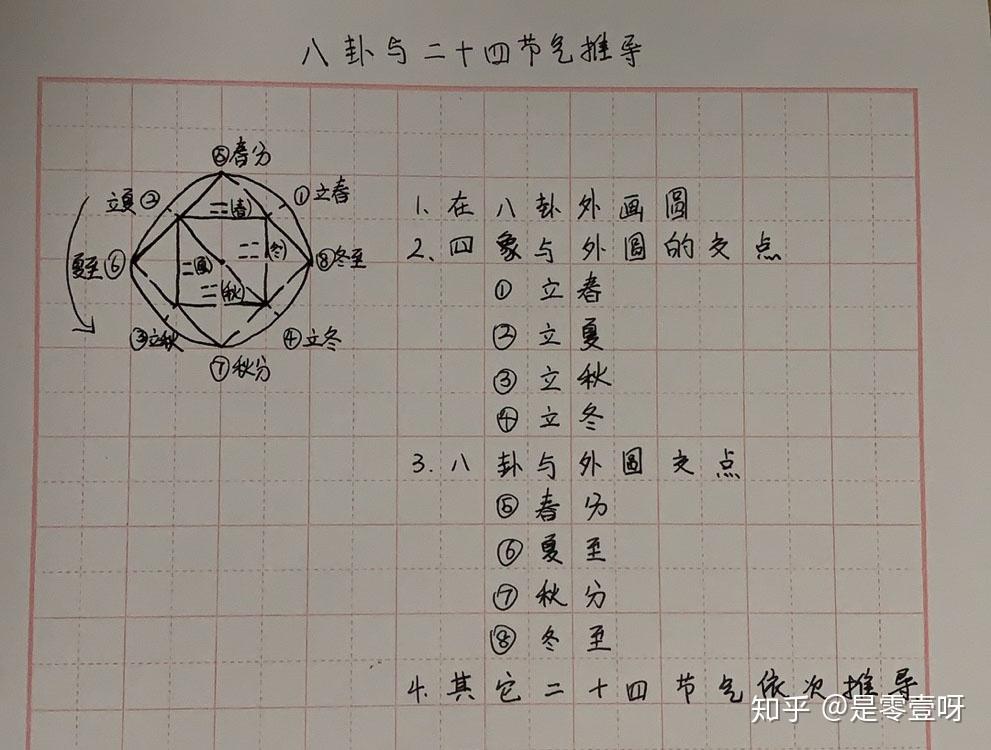 八卦与二十四节气推导
⑤春分
立夏②
①立春
二(春)
二二(冬)
夏至⑥
二(夏)
⑧冬至
二二(秋)
③立秋
④立冬
⑦秋分
1、在八卦外画圆
2、四象与外圆的交点
①立春
②立夏
③立秋
④立冬
3.八卦与外圆交点
⑤春分
⑥夏至
⑦秋分
⑧冬至
4.其它二十四节气依次推导
知乎 @是零壹呀